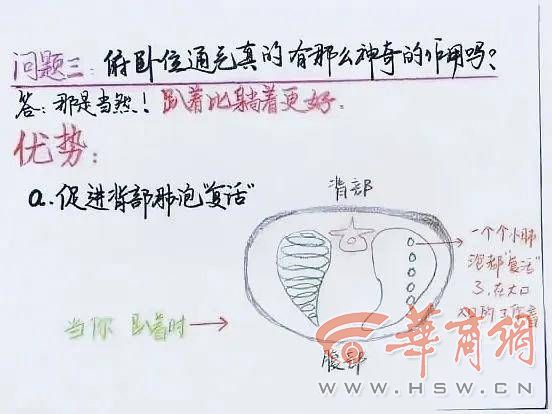 问题三：俯卧位通气真的有那么神奇的作用吗？
答：那是当然！趴着比躺着更好。
优势：
a.促进背部肺泡“复活”
背部
一个个小肺
泡都“复活”
了，在大口
大口的工作着
当你 趴着时
腹部
華商網
WWW.HSW.CN